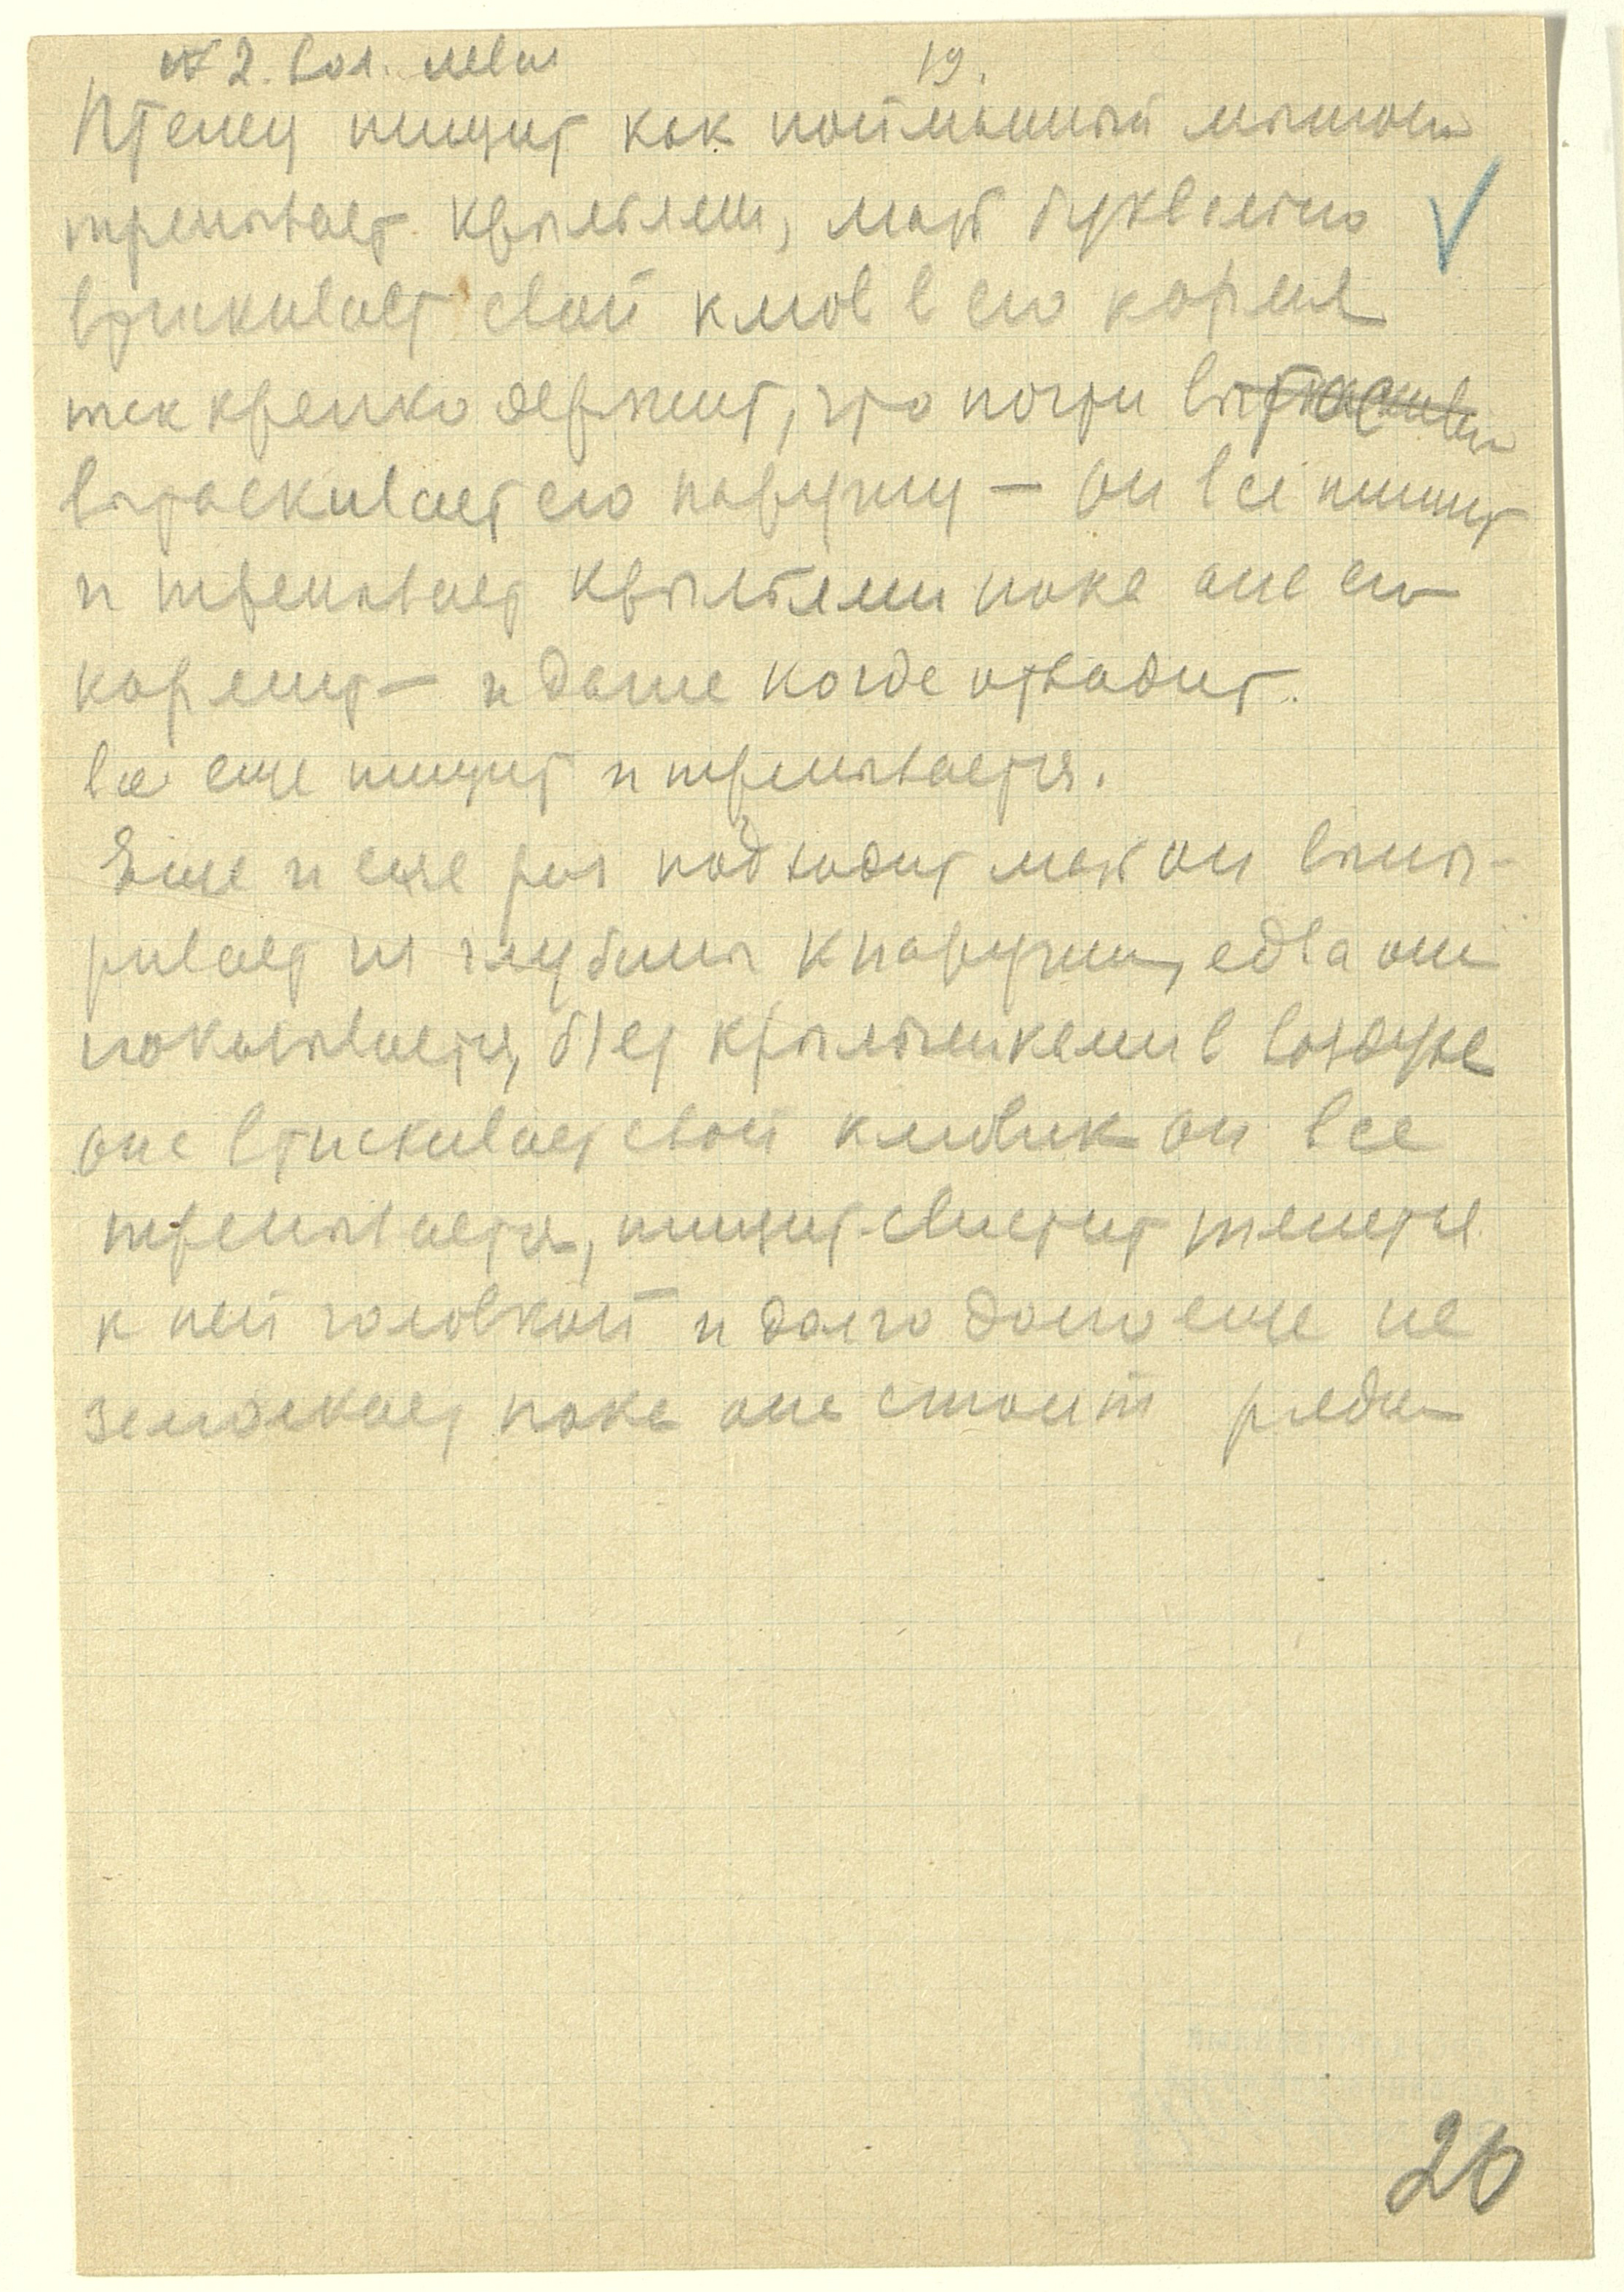 № 2. 19.
Птенец пищит как пойманный мышонок
трепывает крыльями, мать буквально
втискивает свой клюв в его кормя
так крепко держит, что почти вытаскива
вытаскивает его наружу — он все пищит
и трепывает крыльями пока она его
кормит — и даже когда отходит.
все еще пищит и трепывается.
Еще и еще раз подходит мать он выны-
ривает из глубины к наружи, едва она
показывается, бьет крылышками в воздухе
она втискивает свой клювик он все
трепывается, пищит-свистит тянется
к ней головкой и долго долго еще не
замолкает пока она стоит рядом
20